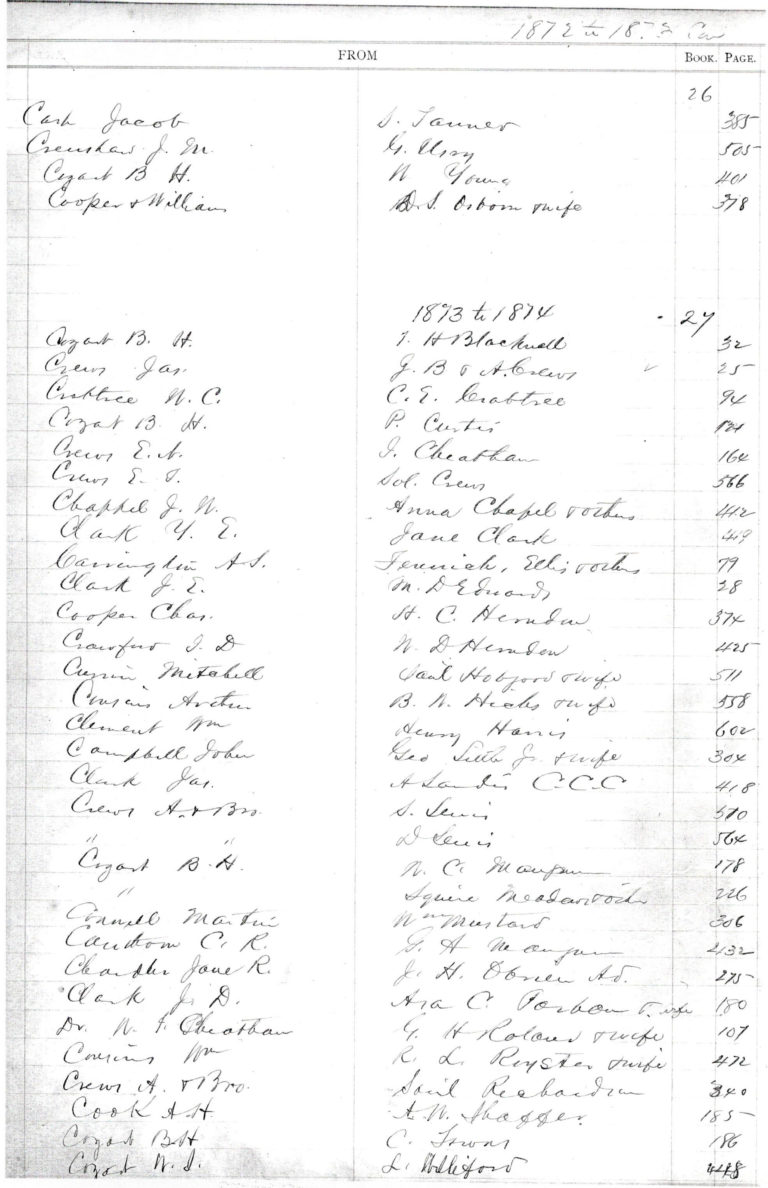 1872 to 187
FROM BOOK. PAGE.
26
Cash Jacob S. Tanner 385
Crenshaw J. M. G. Usry 505
Cozart B H. W Young 401
Cooper & William D. S. Osborn & wife 378
1873 to 1874 27
Cozart B. H. J. H Blacknell 32
Crews Jas. J. B & A. Crews 25
Crabtree W. C. C. E. Crabtree 94
Cozart B. H. P. Curtis
Crews E. N. I. Cheatham 164
Crews E. T. Sol. Crews 566
Chappel J. W. Anna Chapel & others 442
Clark Y. E. Jane Clark 449
Carrington A S. Ellis & others 79
Clark J. E. M. D Edwards 28
Cooper Chas. H. C. Herndon 374
Crawford I. D W. D Herndon 425
Currin Mitchell Hobgood & wife 511
Cousins Arthur B. W. Hicks & wife 558
Clement Wm Henry Harris 602
Campbell John Geo Jr. & wife 304
Clark Jas. A Landis C.C.C 418
Crews A. & Bro. S. Lewis 570
" " D Lewis 564
Cozart B. H. W. C. Mangum 178
" Squire Meadows & others 226
Connell Martin Wm Mustard 306
Cawthorn C. R. G. H Mangum 432
Chandler Jane R. J. H. OBrien Ad. 275
Clark J. D. Asa C. & wife 180
Dr. W. F. Cheatham G. H Roland & wife 107
Cousins Wm R. L. Royster & wife 472
Crews A. & Bro. Richardson 340
Cook A H. A. W. Shaffer 185
Cozart B H C. Towns 186
Cozart W. S. L. Williford 448